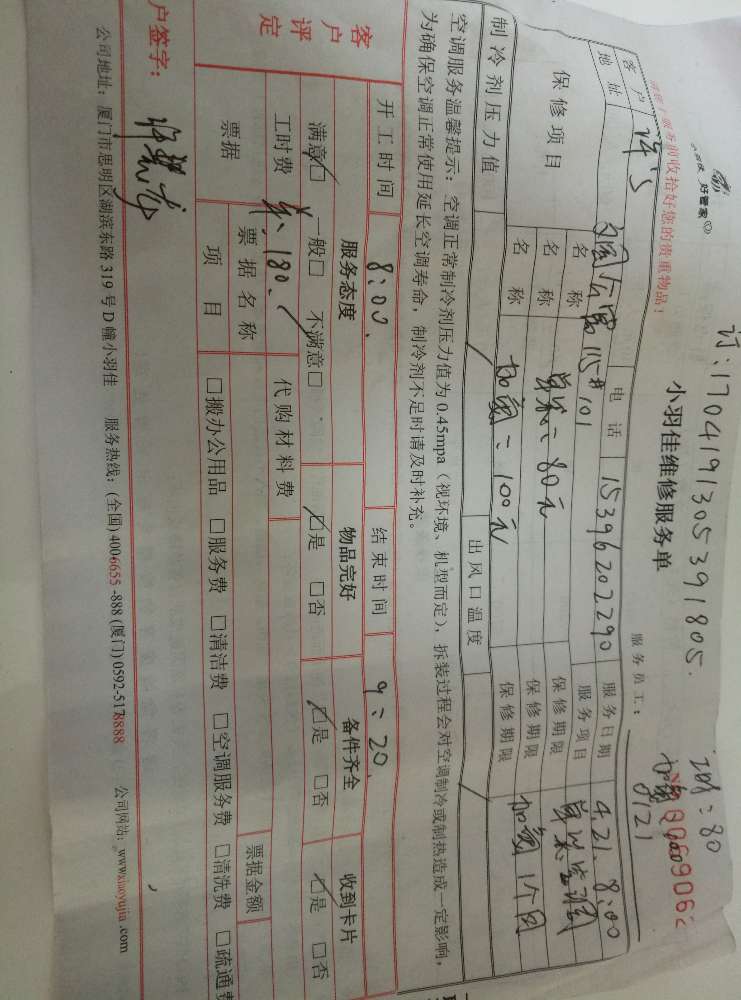 订:1704191305391805.
小羽佳 好管家
小羽佳维修服务单
服务员工:
调: 80
加氟
0121
请您于服务前收拾好您的贵重物品!
客户 许 电话 15396202290 服务日期 4.21. 8:00
地址 公寓115#101 服务项目 单器空调
保修项目 名称 保修期限
名称 80元 保修期限
名称 加氟: 100元 保修期限 加氟1个月
制冷剂压力值 出风口温度
空调服务温馨提示:空调正常制冷剂压力值为0.45mpa(视环境、机型而定),拆装过程会对空调制冷或制热造成一定影响,
为确保空调正常使用延长空调寿命,制冷剂不足时请及时补充。
开工时间 8:00. 结束时间 9:20.
客户评定 服务态度 物品完好 备件齐全 收到卡片
满意☑ 一般□ 不满意□ ☑是 □否 ☑是 □否 ☑是 □否
工时费 180. 代购材料费
票据 票据名称 票据金额
项目 □搬办公用品 □服务费 □清洁费 □空调服务费 □清洗费 □疏通费
户签字:
公司地址:厦门市思明区湖滨东路319号D幢小羽佳 服务热线:(全国)4006655-888(厦门)0592-5178888 公司网站:www.xiaoyujia.com